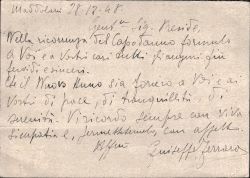 Maddaloni 28-12-48.
Gent.mo Sig. Preside,
Nella ricorrenza del Capodanno formulo
a Voi e a vostri cari tutti gli auguri più
fervidi e sinceri.
Il Nuovo Anno sia foriero a Voi e ai
Vostri di pace, di tranquillità, di
serenità. Vi ricordo sempre con viva
simpatia e, con affetto
Giuseppe Ferrara